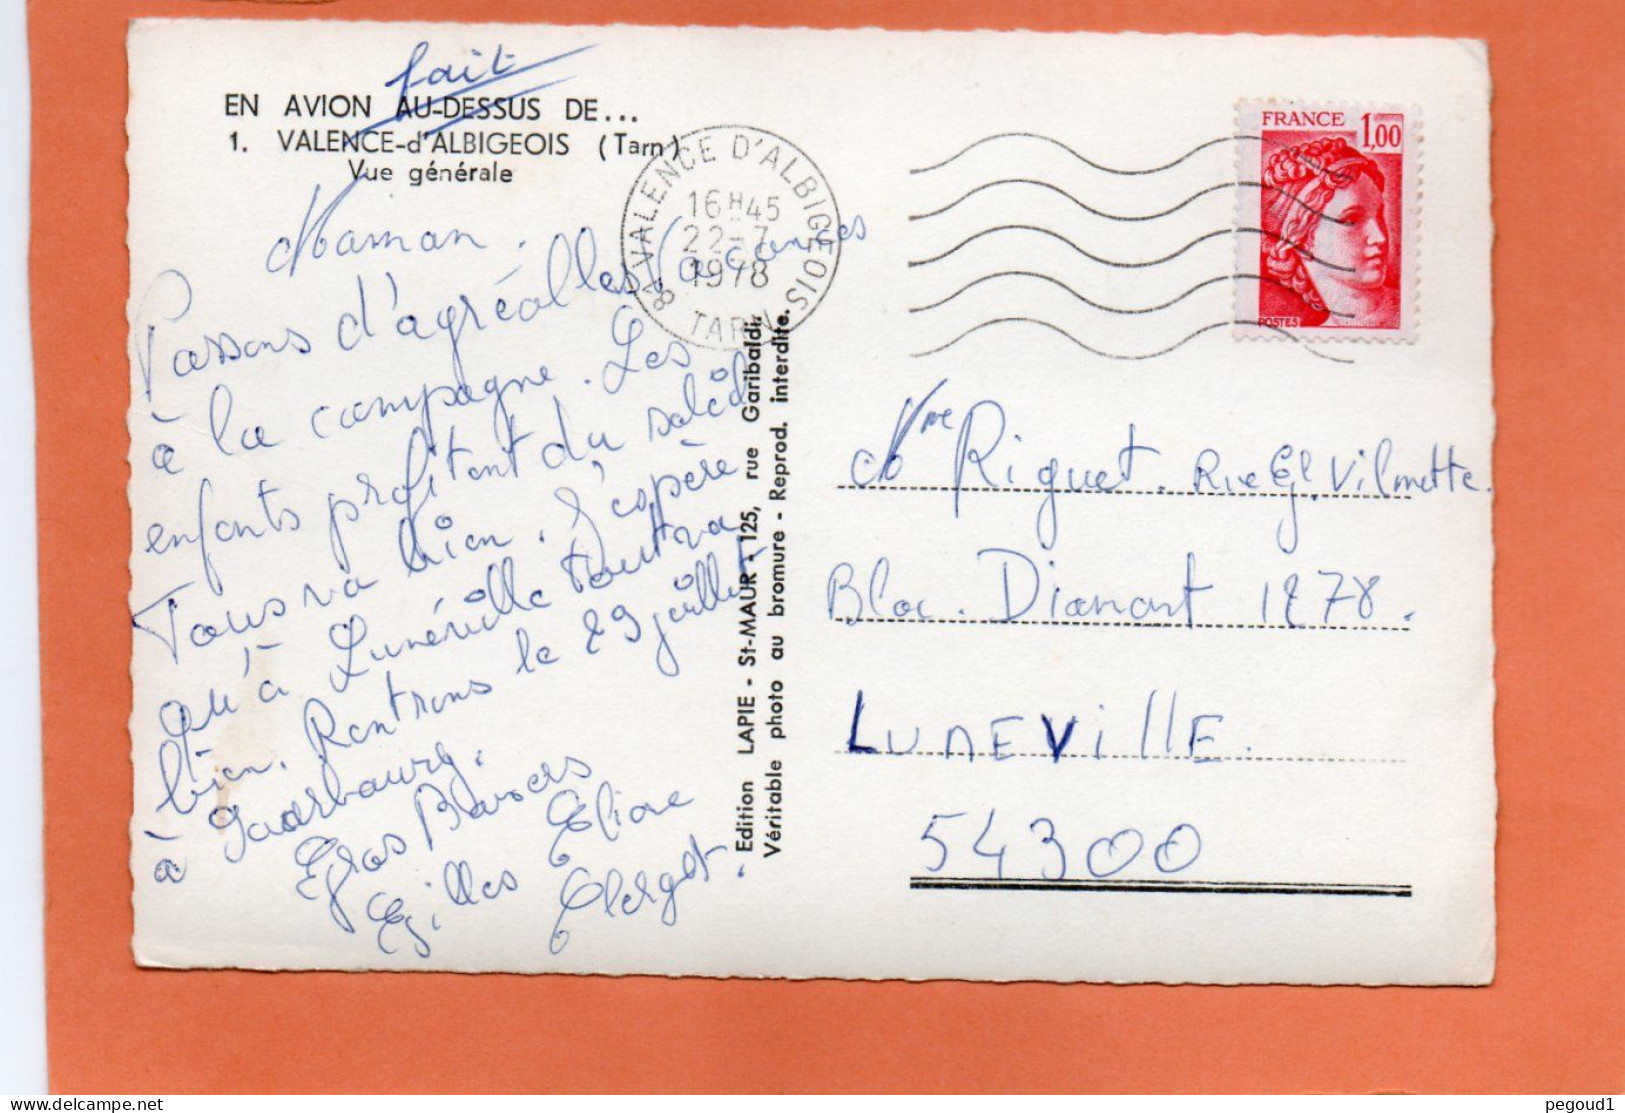 fait
EN AVION AU-DESSUS DE...
1. VALENCE-d'ALBIGEOIS (Tarn)
Vue générale
Maman.
Passons d'agréables Vacances
à la campagne. Les
enfants profitent du soleil
Tous va bien. J'espère
qu'à Lunéville tout va
bien. Rentrons le 29 juillet
à Sarrbourg.
Gros Baisers
Gilles Eliane
Clergot.
81 VALENCE D'ALBIGEOIS
16H45
22-7
1978
TARN
Edition LAPIE - St-MAUR - 125, rue Garibaldi.
Véritable photo au bromure - Reprod. interdite.
FRANCE 1,00
POSTES
Mme Riquet. Rue Gl. Vilmette.
Bloc. Diamant 1278.
LUNEVillE.
54300
pegoud1